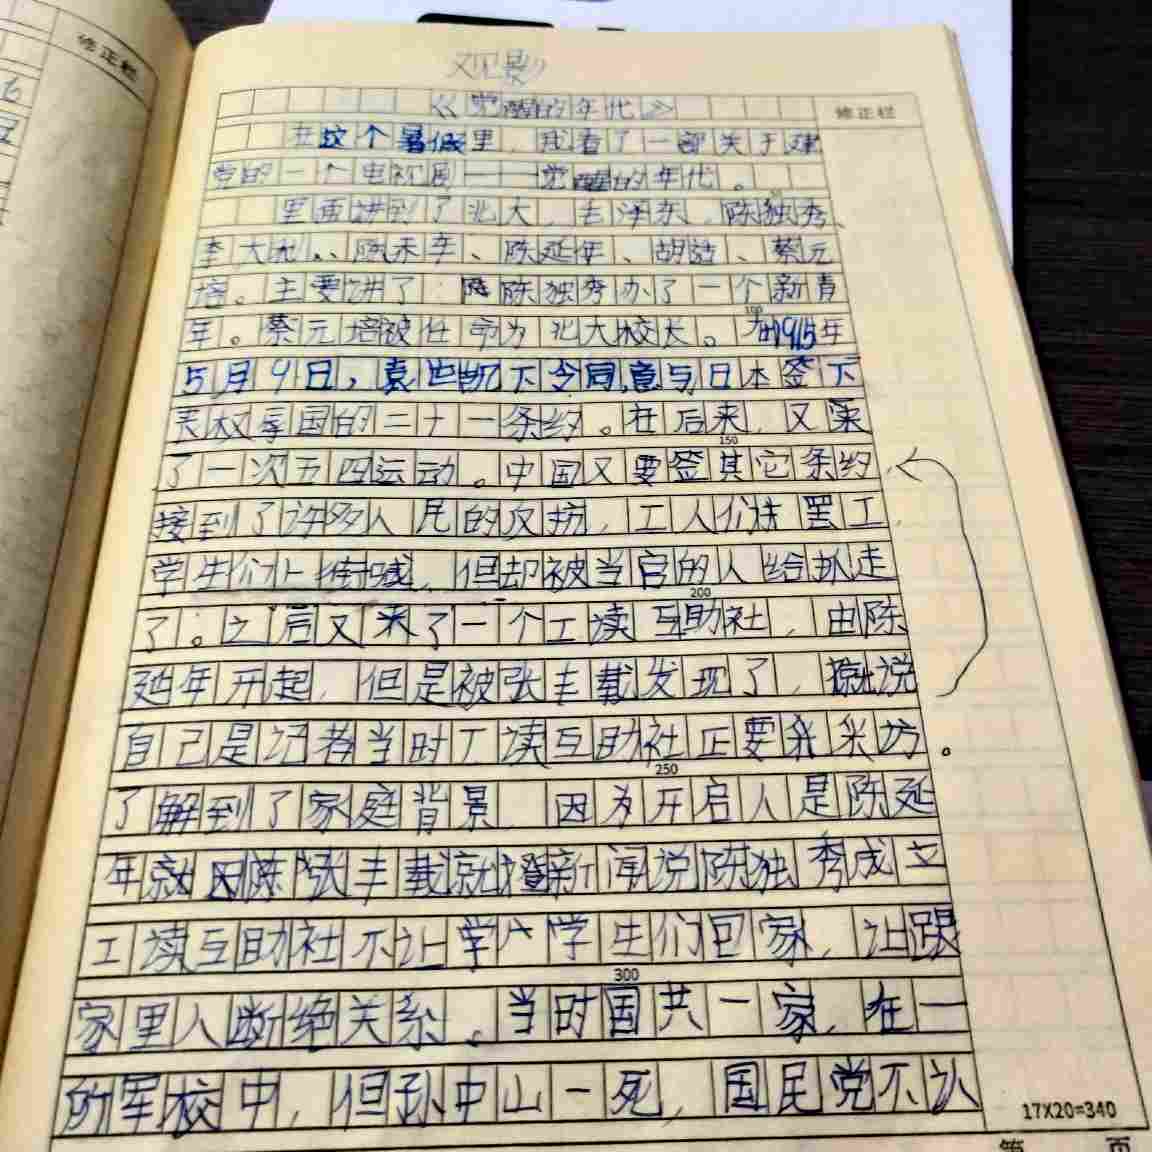 修正栏
观影
《觉醒的年代》
修正栏
在这个暑假里，我看了一部关于建
党的一个电视剧——觉醒的年代。
里面讲到了北大，毛泽东，陈独秀、
李大、陈乔年、陈延年、胡适、蔡元
培。主要讲了：陈独秀办了一个新青
年。蔡元培被任命为北大校长。在1915年
100
5月9日，袁世凯下令同意与日本签下
丧权辱国的二十一条约。在后来，又来
150
了一次五四运动。中国又要签其它条约，
接到了许多人民的反抗，工人们罢工，
学生们上街喊，但却被当官的人给抓走
200
了。之后又来了一个工读互助社，由陈
延年开起，但是被张丰载发现了，就说
自己是记者当时工读互助社正要采访。
250
了解到了家庭背景，因为开启人是陈延
年就张丰载就新闻说陈独秀成立
工读互助社不让学生们回家，让跟
300
家里人断绝关系。当时国共一家，在一
所军校中，但孙中山一死，国民党不认
17X20=340
第 页